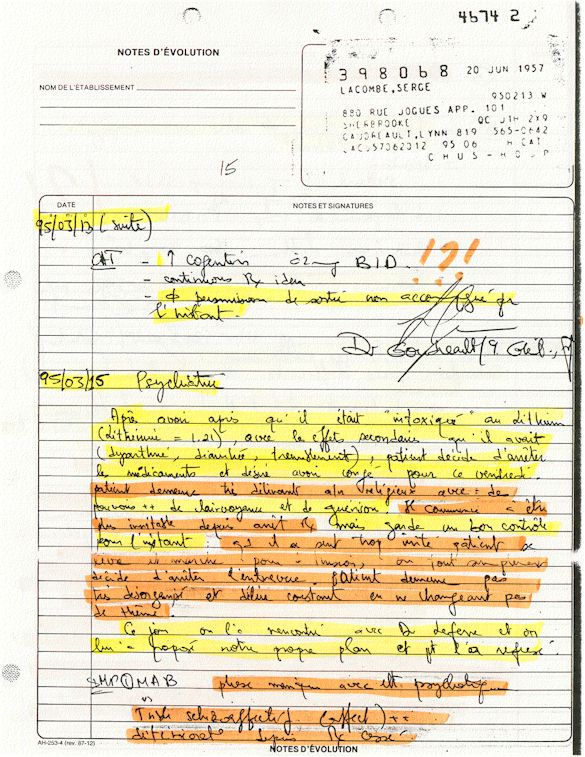 4674 2
NOTES D'ÉVOLUTION
398068 20 JUN 1957
NOM DE L'ÉTABLISSEMENT
LACOMBE, SERGE
950213 W
880 RUE JOGUES APP. 101
SHERBROOKE QC J1H 2X9
GAUDREAULT, LYNN 819 565-0642
LACS57062012 95 06 H CAT
CHUS-HOP
15
DATE NOTES ET SIGNATURES
95/03/13 (suite)
- ↑ Cogentin à 2mg BID. !?!
- continuons Rx idem
- ∅ permission de sortie non accompagné pr
l'instant.
Dr
95/03/15 Psychiatrie
Après avoir appris qu'il était "intoxiqué" au lithium
(lithémie = 1.21), avec les effets secondaires qu'il avait
(dysarthrie, diarrhée, tremblement), patient décide d'arrêter
le médicaments et désire avoir congé pour ce vendredi.
patient demeure très délirant a/n religieux avec des
pouvoirs ++ de clairvoyance et de guérison. Il commence à être
plus irritable depuis arrêt Rx mais garde un bon contrôle
pour l'instant. qd il a sent trop irrité patient se
lève et marche pour
décide d'arrêter l'entrevue. Patient demeure pas
très désorganisé et délire constant en ne changeant pas
de thème.
Ce jour on l'a rencontré avec Dr et on
lui a proposé notre propre plan et pt l'a refusé.
IMP ① MAB phase maniaque avec élt psychotique
vs
Tr schizoaffectif. (affect) ++
détérioré depuis Rx cessé.
AH-253-4 (rev. 87-12)
NOTES D'ÉVOLUTION